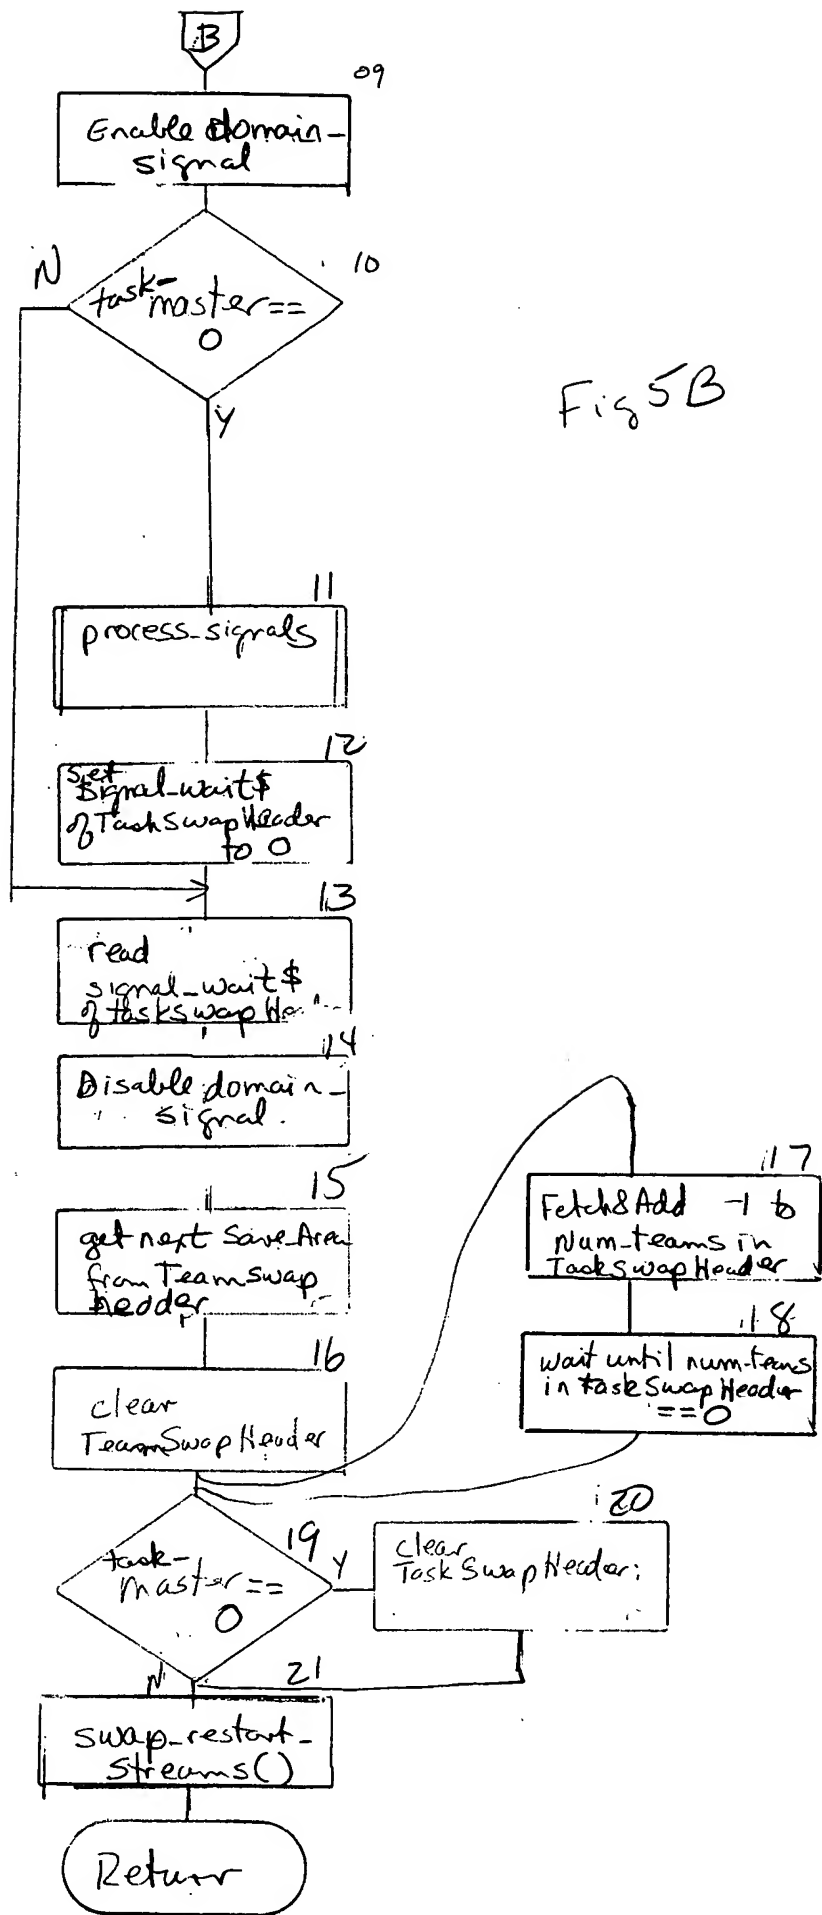 B
09
Enable domain-
signal
10
N
task-
master==
0
Y
Fig 5B
11
process_signals
12
set
signal_wait$
of TaskSwapHeader
to 0
13
read
signal_wait$
of taskSwapHe
14
Disable domain-
signal.
15
get next Save_Area
from TeamSwap
header
16
clear
TeamSwapHeader
17
Fetch&Add -1 to
Num-teams in
TaskSwapHeader
18
wait until num-teams
in taskSwapHeader
==0
19
task-
master==
0
Y
N
20
clear
TaskSwapHeader;
21
swap_restart_
streams()
Return